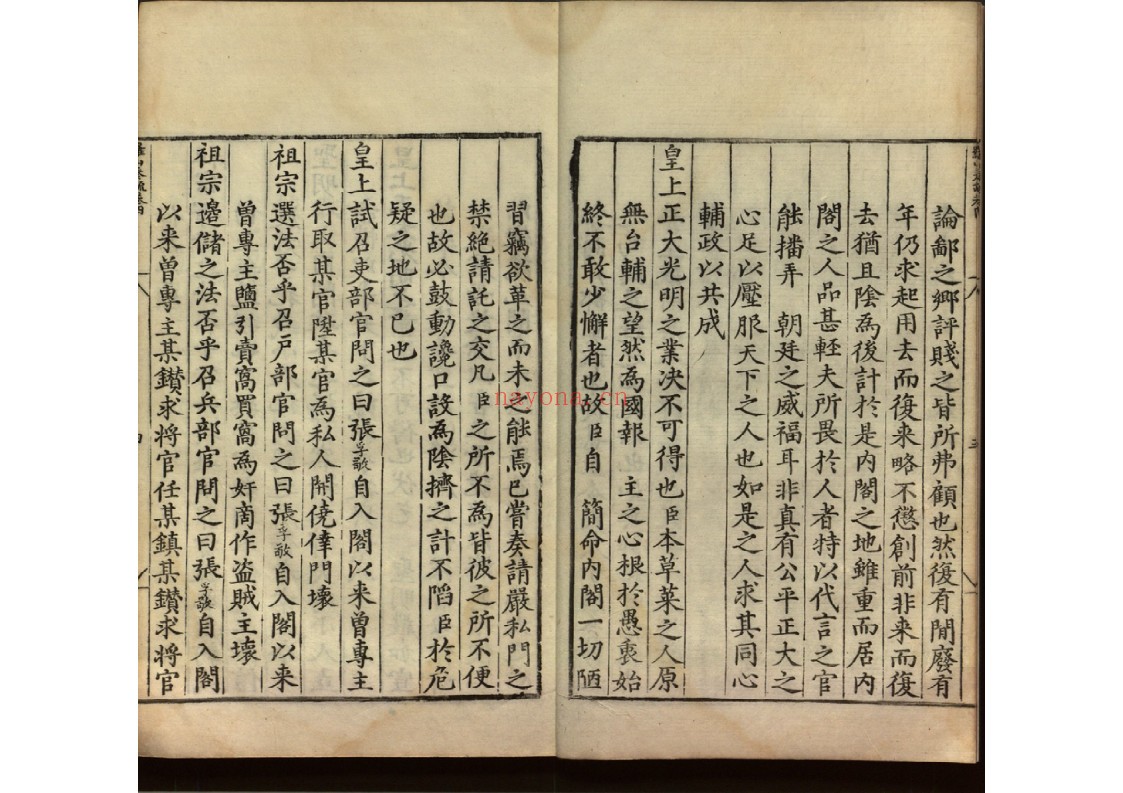 論鄙之鄉評賤之皆所弗顧也然復有閒廢有
年仍求起用去而復来略不懲創前非来而復
去猶且陰為後計於是内閣之地雖重而居内
閣之人品甚輊夫所畏於人者特以代言之官
能播弄 朝廷之威福耳非真有公平正大之
心足以壓服天下之人也如是之人求其同心
輔政以共成
皇上正大光明之業決不可得也臣本草菜之人原
無台輔之望然為國報 主之心根於愚衷始
終不敢少懈者也故臣自 簡命内閣一切陋
習竊欲革之而未之能焉已嘗奏請嚴私門之
禁絶請託之交凡臣之所不為皆彼之所不便
也故必鼓動讒口設為陰擠之計不陷臣於危
疑之地不已也
皇上試召吏部官問之曰張孚敬自入閣以来曽專主
行取某官陞某官為私人開僥倖門壞
祖宗選法否乎召戶部官問之曰張孚敬自入閣以来
曽專主鹽引賣窩買窩為奸商作盗賊主壞
祖宗邉儲之法否乎召兵部官問之曰張孚敬自入閣
以来曽專主某鑚求将官任某鎮某鑚求将官
nayona.cn